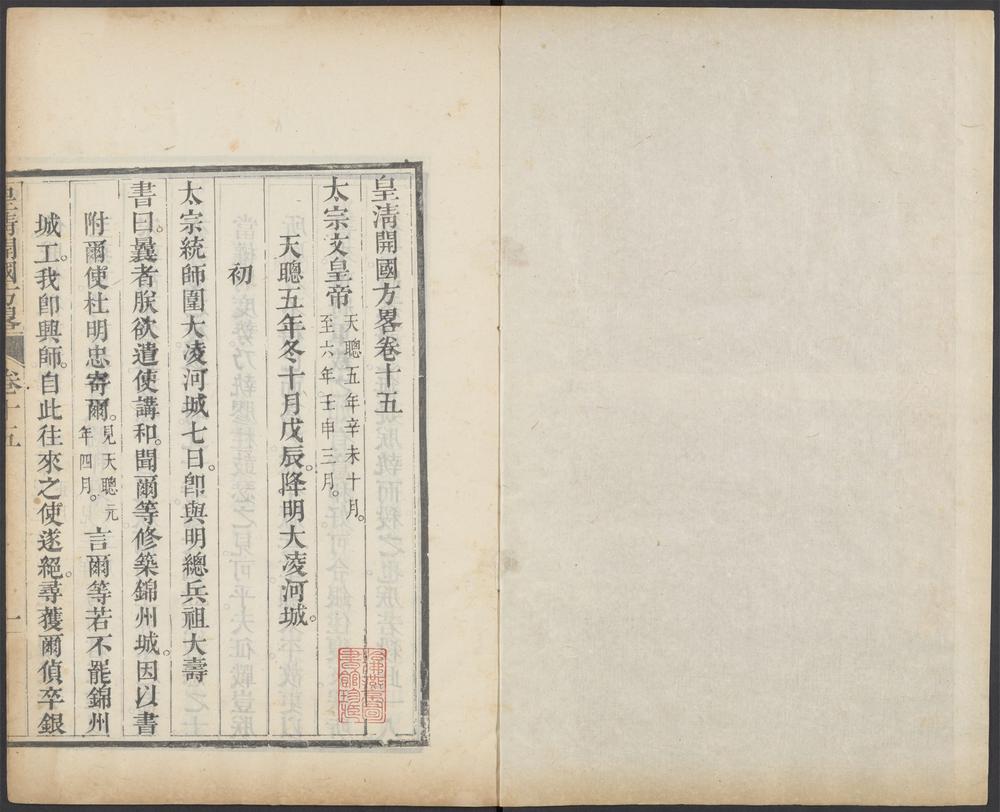 皇清開國方畧卷十五
太宗文皇帝天聰五年辛未十月。至六年壬申三月。
天聰五年冬十月戊辰。降明大凌河城。
初
太宗統師圍大凌河城七日。卽與明總兵祖大壽
書曰。曩者朕欲遣使講和。聞爾等修築錦州城。因以書
附爾使杜明忠寄爾。見天聰元年四月。言爾等若不罷錦州
城工。我卽興師。自此往來之使遂絕。尋獲爾偵卒銀
皇清開國方畧 卷十五 一